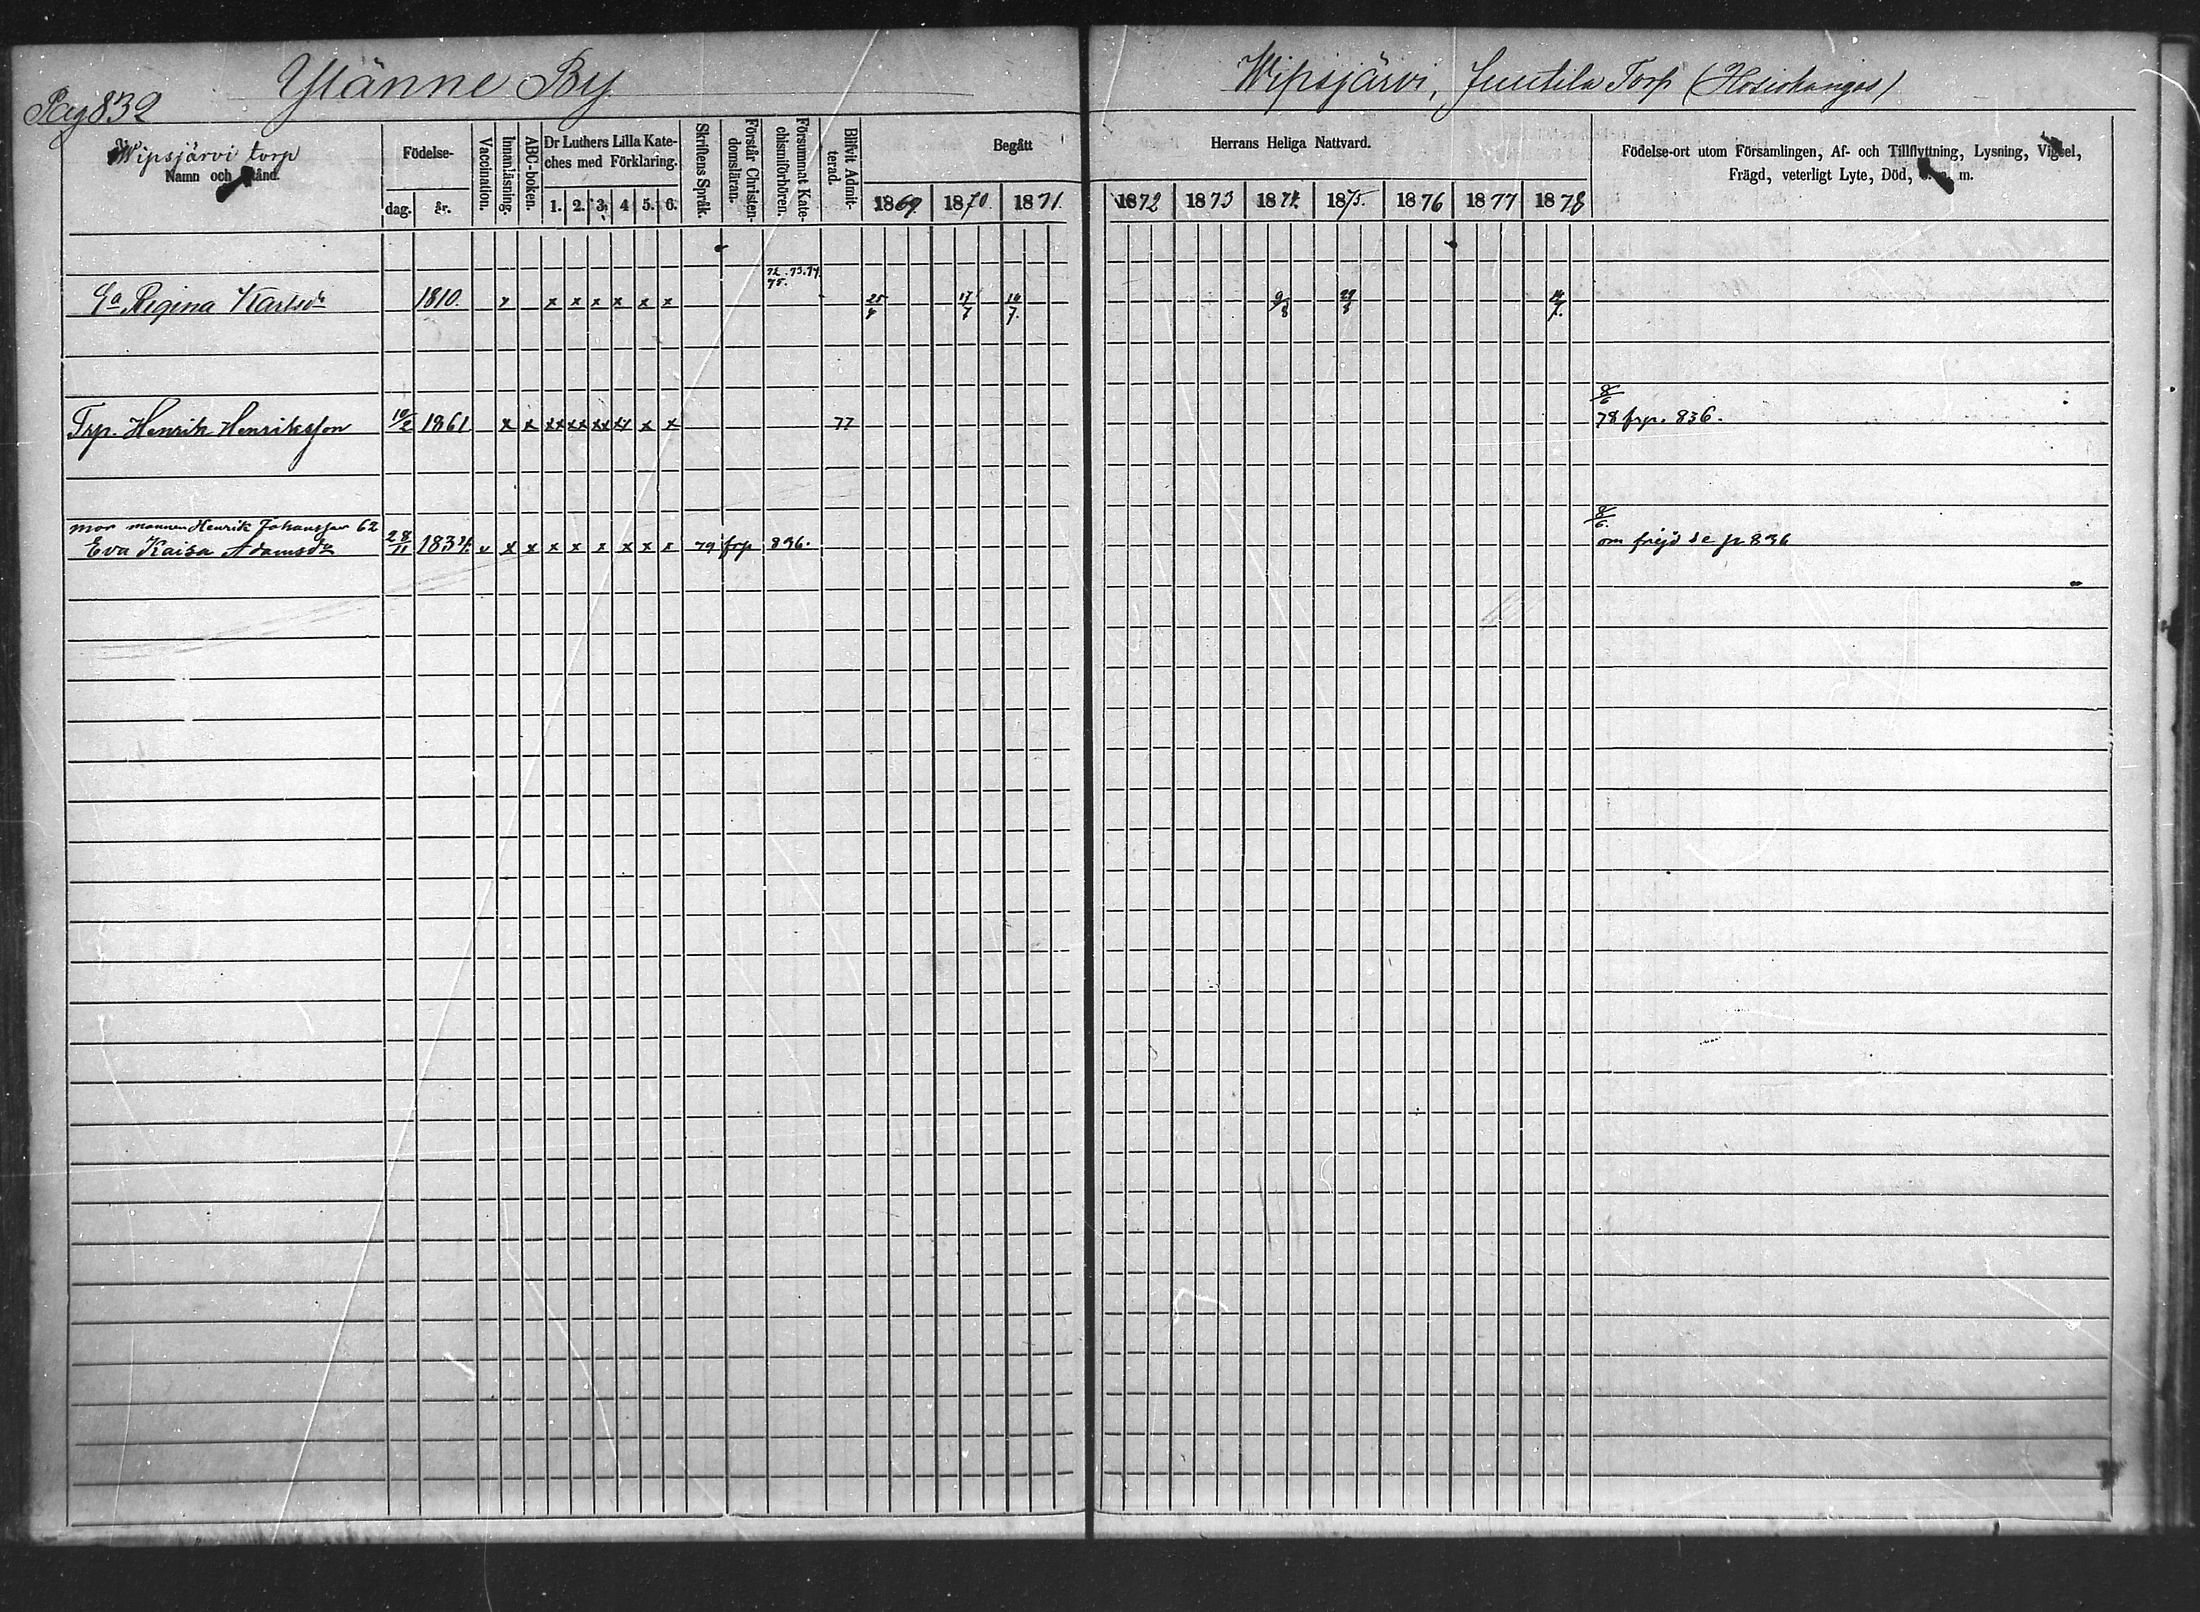 Pag 832
Ylänne By
Wipsjärvi, Juutila Torp (Hosiokangas)
Wipsjärvi torp
Namn och Stånd.
Födelse-
dag. år.
Vaccination.
Innanläsning.
ABC-boken.
Dr Luthers Lilla Kate-
ches med Förklaring.
1. 2. 3. 4 5. 6.
Skriftens Språk.
Förstår Christen-
domsläran.
Försummat Kate-
chismiförhören.
Blifvit Admit-
terad.
Begått
1869. 1870. 1871.
Herrans Heliga Nattvard.
1872 1873 1874. 1875. 1876 1877 1878
Födelse-ort utom Församlingen, Af- och Tillflyttning, Lysning, Vigsel,
Frägd, veterligt Lyte, Död, m.
72. 73. 74.
75.
Ga Regina Karlsdr 1810. x x x x x x x 17/7 16/7. 9/8
8/6
Trp. Henrik Henriksson 10/2 1861 x x xx xx xx xx x x 77 78 frp. 836.
8/6.
mor mannen Henrik Johansson 62
Eva Kaisa Adamsdr 28/11 1834. v x x x x x x x x 79 frp 836. om frejd se p 836